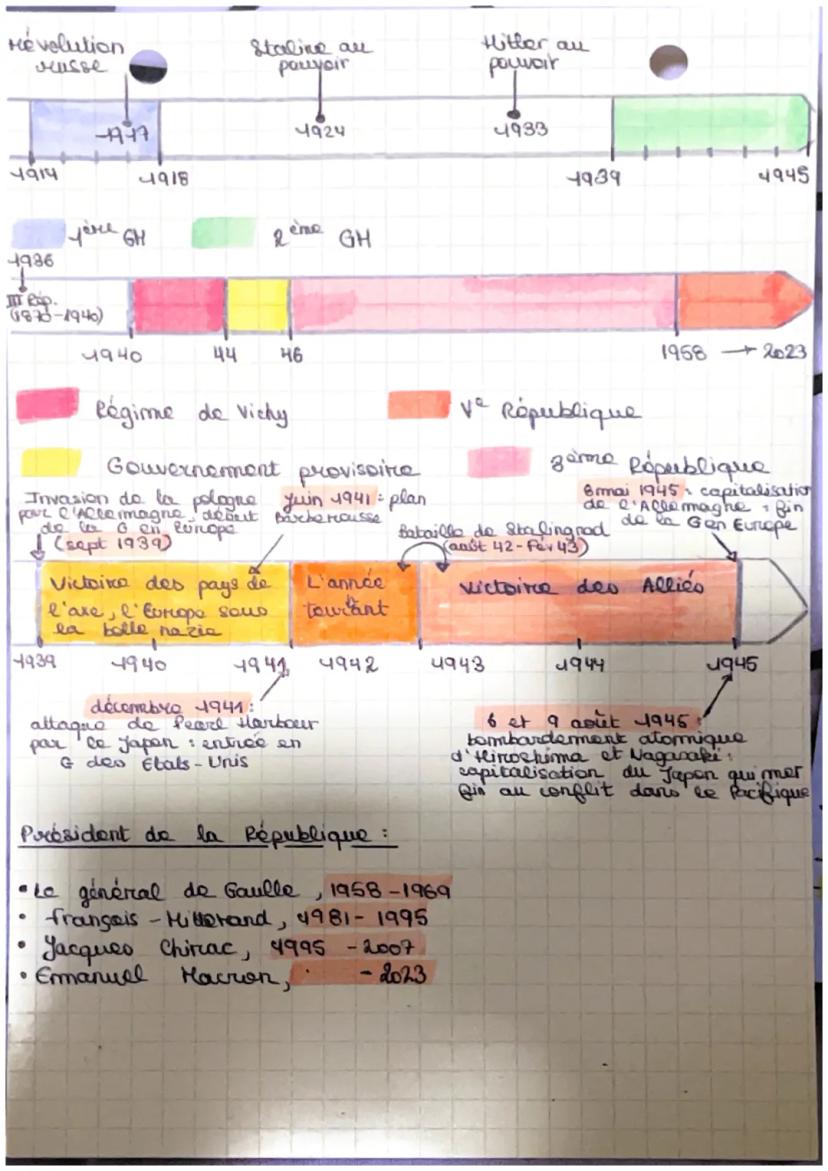 Révolution russe
Staline au pouvoir
Hitler au pouvoir
1917
1924
1933
1914
1918
1939
1945
1ère GH
2ème GH
1936
III Rép.
(1870-1940)
1940
44
46
1958 → 2023
Régime de Vichy
Ve République
Gouvernement provisoire
3ème République
Invasion de la pologne
par l'Allemagne, début
de la G en Europe
(sept 1939)
Juin 1941 : plan
Barberousse
Bataille de Stalingrad
(août 42 - Fév 43)
8 mai 1945 : capitalisation
de l'Allemagne : fin
de la G en Europe
Victoire des pays de
l'axe, l'Europe sous
la botte nazie
L'année
tourant
Victoire des Alliés
1939
1940
1941
1942
1943
1944
1945
décembre 1941 :
attaque de Pearl Harbour
par le Japon : entrée en
G des États-Unis
6 et 9 août 1945 :
bombardement atomique
d'Hiroshima et Nagasaki :
capitalisation du Japon qui met
fin au conflit dans le Pacifique
Président de la République :
• Le général de Gaulle, 1958 - 1969
• François - Mitterand, 1981 - 1995
• Jacques Chirac, 1995 - 2007
• Emmanuel Macron, - 2023